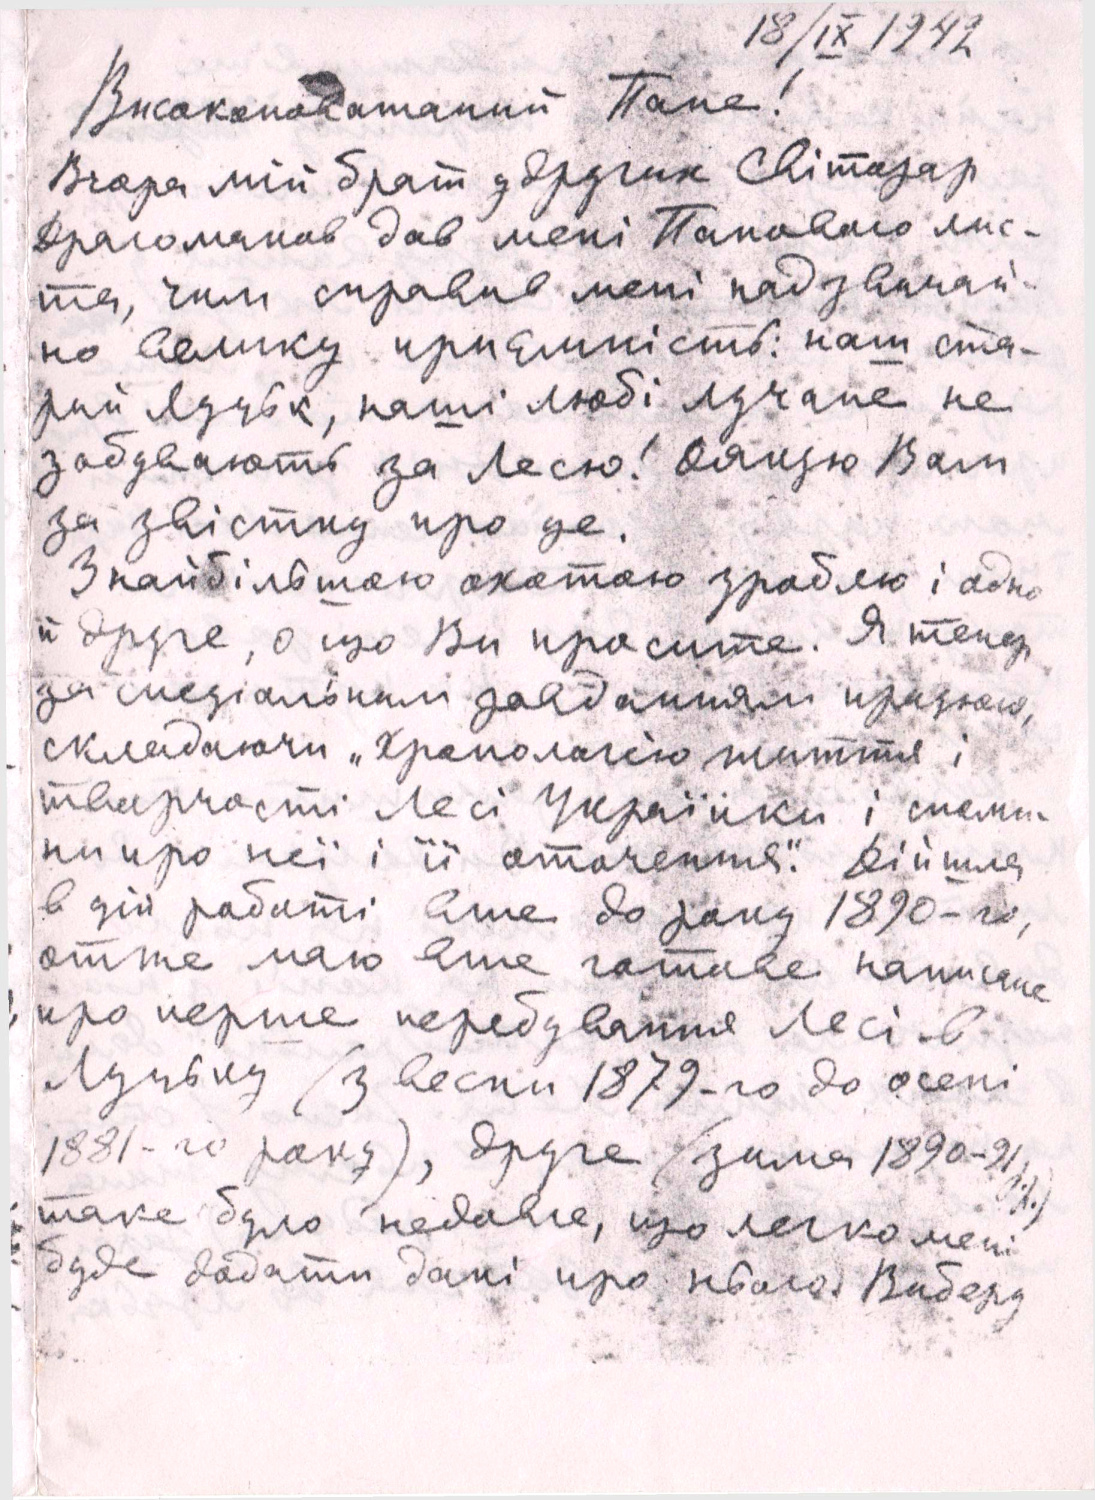 18/IX 1942
Високоповатаний Пане!
Вчора мій брат удругих Світозар
Драгоманов дав мені Панового лис-
та, чим справив мені надзвичай-
но велику приємність: наш ста-
рий Луцьк, наші любі лучане не
забувають за Лесю! Дякую Вам
за звістку про це.
З найбільшою охотою зроблю і одно
й друге, о що Ви просите. Я тепер
за спеціальним завданням працюю,
складаючи „Хронологію життя і
творчості Лесі Українки і споми-
ни про неї і її оточення". Дійшла
в цій роботі вже до року 1890-го,
отже маю вже готове написане
про перше перебування Лесі в
Луцьку (з весни 1879-го до осені
1881-го року), друге (зима 1890-91
таке було недовге, що легко мені
буде додати дані про нього. Виберу